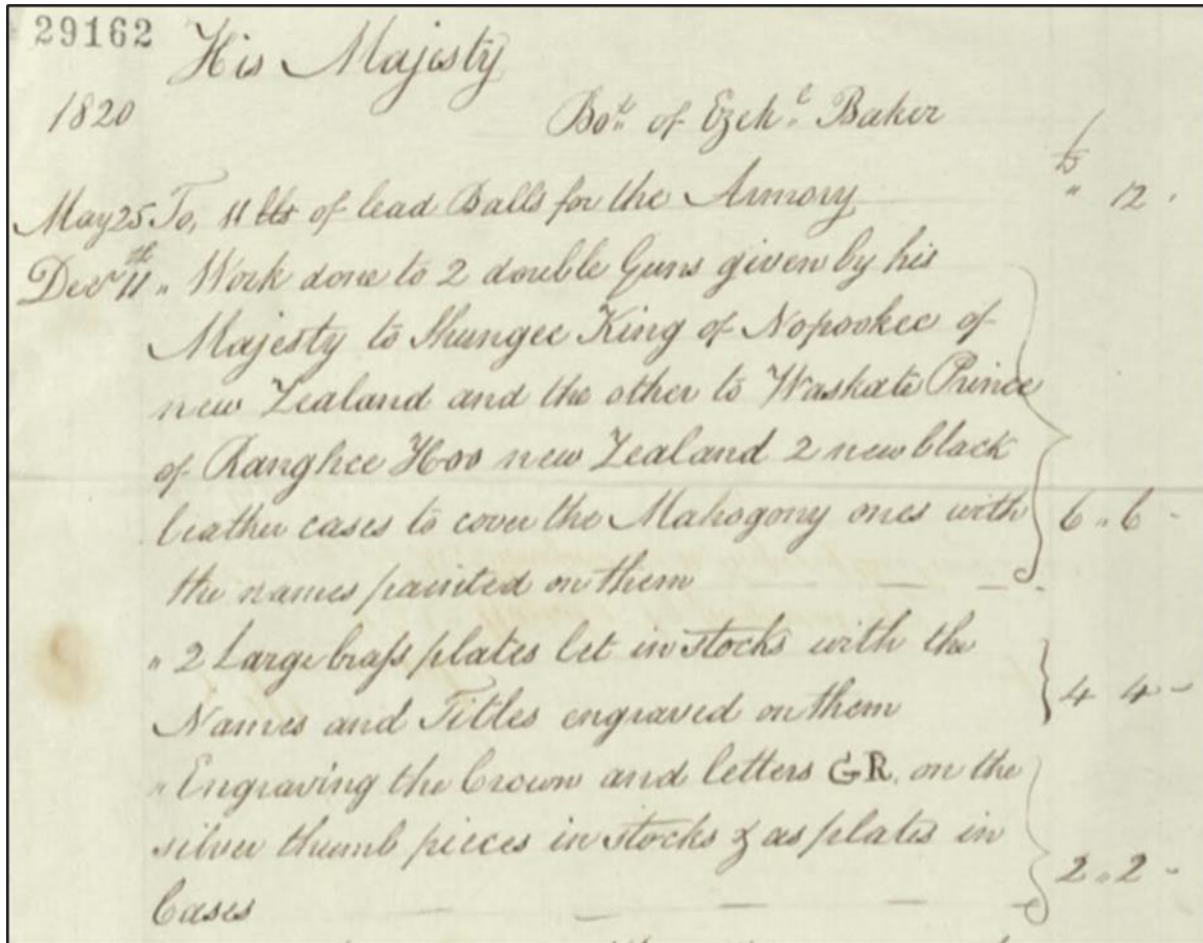 29162
His Majesty
1820
Bot. of Ezekl. Baker
May 25 To, 11 lbs of lead Balls for the Armory " 12 "
Decr 11th " Work done to 2 double Guns given by his
Majesty to Shungee King of Nopookee of
new Zealand and the other to Waskate Prince
of Ranghee Hoo new Zealand 2 new black
leather cases to cover the Mahogony ones with 6 " 6 -
the names painted on them
" 2 Large brass plates let in stocks with the
Names and Titles engraved on them 4 4 -
" Engraving the Crown and letters GR. on the
silver thumb pieces in stocks & as plates in
Cases 2 " 2 -